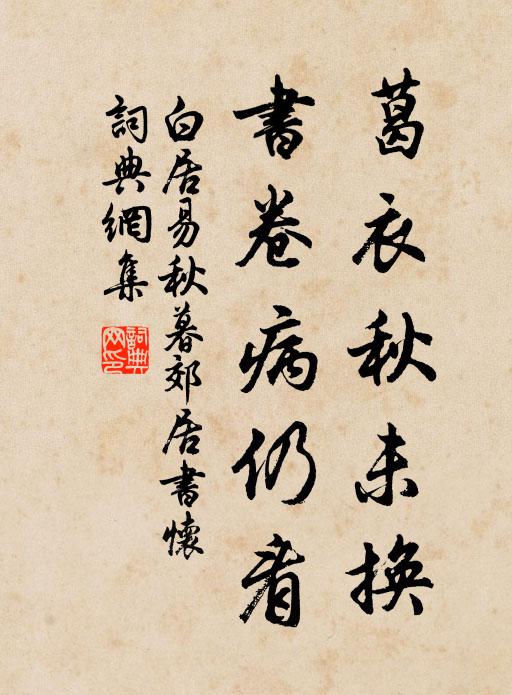 葛衣秋未換
書卷病仍看
白居易秋暮郊居書懷
詞典網集
詞典網印